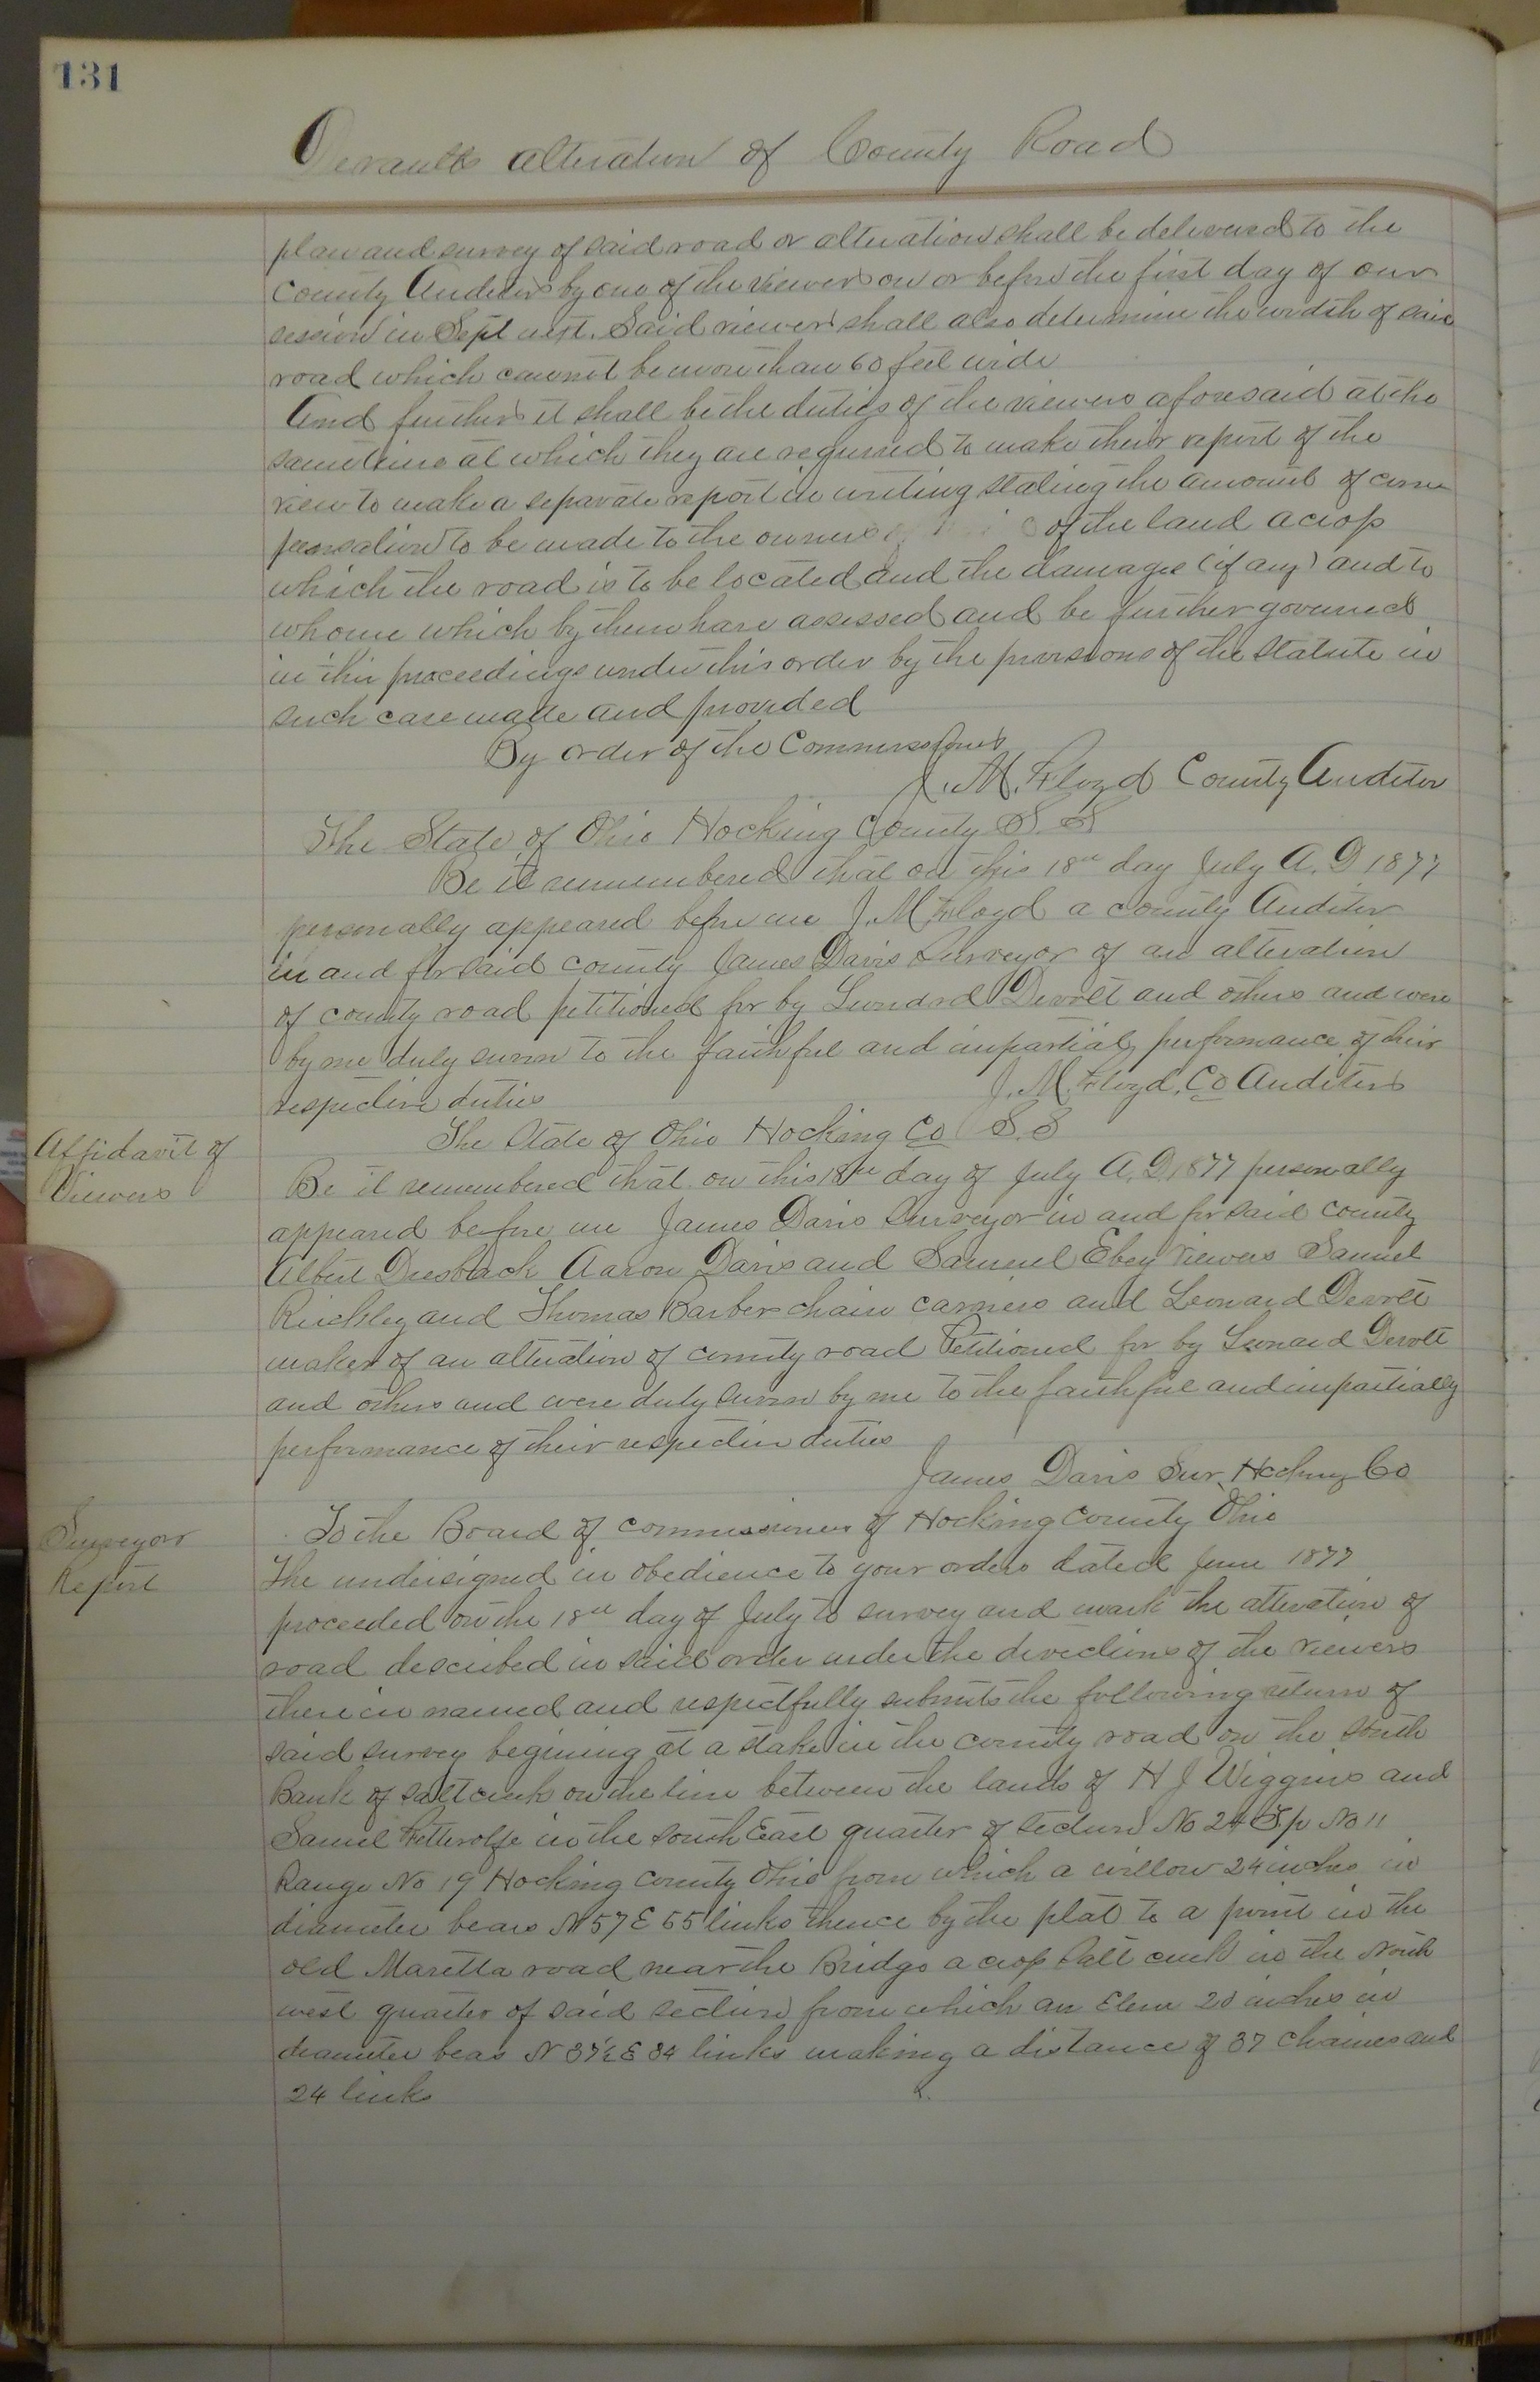 131
alteration of County Road
plan and survey of said road or alteration shall be delivered to the
County Auditor by one of the viewers on or before the first day of our
session in Sept next. Said viewers shall also determine the width of said
road which cannot be more than 60 feet wide
And further it shall be the duties of the viewers aforesaid at the
sametime at which they are required to make their report of the
view to make a separate report in writing stating the amount of com
pensation to be made to the owners of the land across
which the road is to be located and the damages (if any) and to
whome which by them have assessed and be further governed
in this proceedings under this order by the provisions of the Statute in
such case made and provided
By order of the Commissioners
J. M. Floyd County Auditor
The State of Ohio Hocking County S. S
Be it remembered that on this 18th day July A. D 1877
personally appeared before me J. M Floyd a county Auditor
in and for said county James Davis Surveyor of an alteration
of county road petitioned for by Devolt and others and were
by me duly sworn to the faithful and impartialy performance of their
respective duties
J. M. Floyd, Co Auditor
Affidavit of
Viewers
The State of Ohio Hocking Co S. S
Be it remembered that on this 18th day of July A. D. 1877 personally
appeared before me James Davis Surveyor in and for said county
Albert Dresback Aaron Davis and Samuel Ebey viewers Samuel
and Thomas Barber chain carriers and Leonard Devolt
maker of an alteration of county road Petitioned for by Leonard Devolt
and others and were duly sworn by me to the faithful and impartially
performance of their respective duties
James Davis Sur. Hocking Co
Surveyors
Report
To the Board of commissioners of Hocking County Ohio
The undersigned in obedience to your orders dated June 1877
proceeded on the 18th day of July to survey and mark the alteration of
road described in said order under the directions of the viewers
therein named and respectfully submits the following return of
said survey begining at a stake in the county road on the south
Bank of salt creek on the line between the lands of H J Wiggins and
Samuel Fetherolfe in the south East quarter of section No 24 Tp No 11
Range No 19 Hocking County Ohio from which a willow 24 inches in
diameter bears N 57 E 55 links thence by the plat to a point in the
old Maretta road near the Bridge across Salt creek in the North
west quarter of said section from which an Elem 20 inches in
diameter beas N 37½ E 34 links making a distance of 37 chaines and
24 links